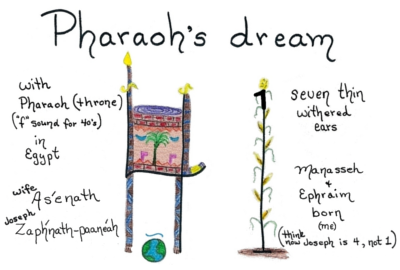 Pharaoh's dream
with
Pharaoh (throne)
("f" sound for 40's)
in
Egypt
wife
As'enath
Joseph
Zaph'nath-paanéah
seven thin
withered
ears
Manasseh
&
Ephraim
born
(me)
(think
now Joseph is 4, not 1)